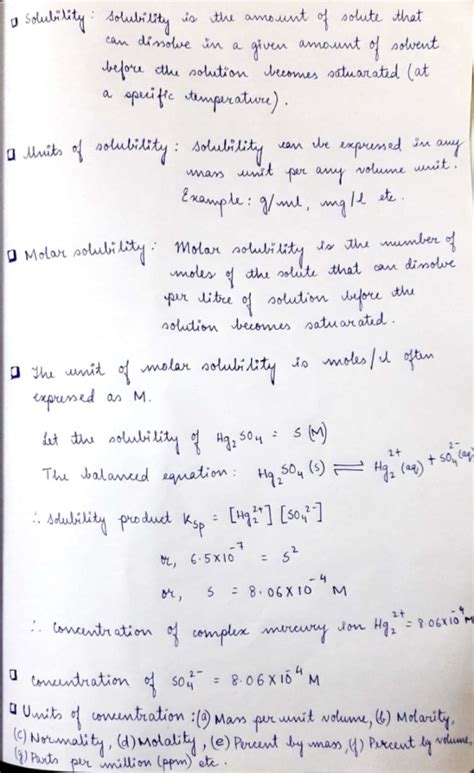 □ Solubility : Solubility is the amount of solute that
can dissolve in a given amount of solvent
before the solution becomes saturated (at
a specific temperature).
□ Units of solubility : Solubility can be expressed in any
mass unit per any volume unit.
Example : g/ml, mg/l etc.
□ Molar solubility : Molar solubility is the number of
moles of the solute that can dissolve
per litre of solution before the
solution becomes saturated.
□ The unit of molar solubility is moles/l often
expressed as M.
Let the solubility of Hg₂SO₄ = S (M)
The balanced equation : Hg₂SO₄ (s) ⇌ Hg₂²⁺ (aq) + SO₄²⁻ (aq)
∴ Solubility product Ksp = [Hg₂²⁺] [SO₄²⁻]
or, 6.5×10⁻⁷ = S²
or, S = 8.06×10⁻⁴ M
∴ Concentration of complex mercury ion Hg₂²⁺ = 8.06×10⁻⁴ M
□ Concentration of SO₄²⁻ = 8.06×10⁻⁴ M
□ Units of concentration : (a) Mass per unit volume, (b) Molarity,
(c) Normality, (d) Molality, (e) Percent by mass, (f) Percent by volume,
(g) Parts per million (ppm) etc.